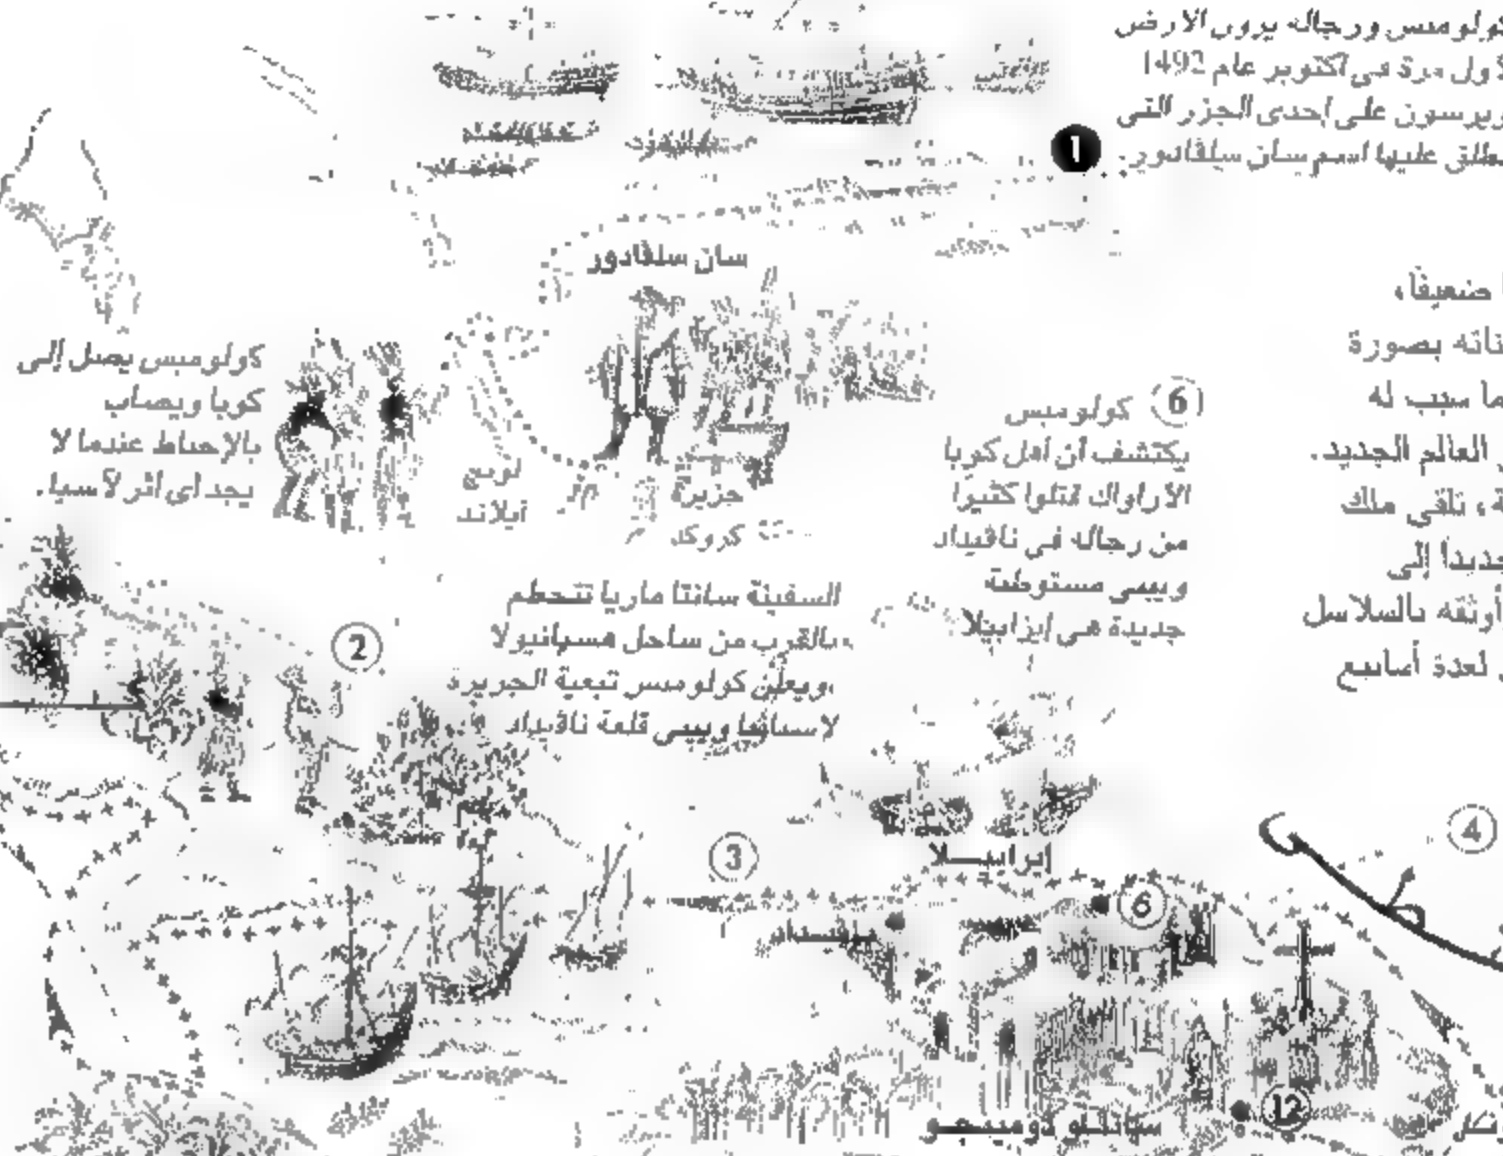 كولومبس ورجاله يرون الأرض
لأول مرة في أكتوبر عام 1492
ويرسون على إحدى الجزر التي
يطلق عليها اسم سان سلڤادور.
1
سان سلڤادور
ضعيفًا،
بصورة
سبب له
العالم الجديد.
تلقى ملك
إلى
أوثقه بالسلاسل
لعدة أسابيع
كولومبس يصل إلى
كوبا ويصاب
بالإحباط عندما لا
يجد أى أثر لآسيا.
لونج
آيلاند
جزيرة
كروكد
6 كولومبس
يكتشف أن أهل كوبا
الأراواك قتلوا كثيرًا
من رجاله فى ناڤيداد
ويبنى مستوطنة
جديدة هى إيزابيلا
2
السفينة سانتا ماريا تتحطم
بالقرب من ساحل هسبانيولا
ويعلن كولومبس تبعية الجزيرة
لإسبانيا ويبنى قلعة ناڤيداد
3
4
إيزابيلا
6
ناڤيداد
سانتو دومينجو
12